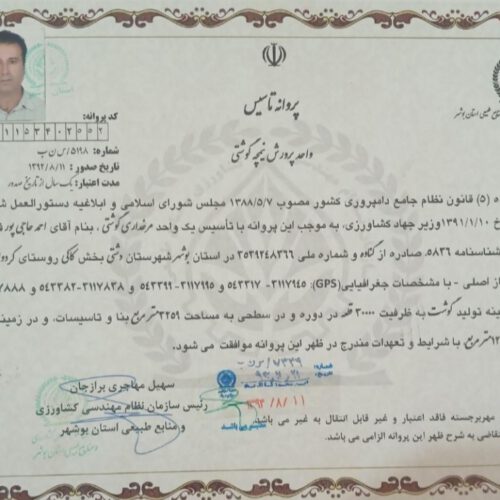 پروانه تاسیس
واحد پرورش نیمچه گوشتی
کد پروانه:
شماره: ۵۱۹۸/س ن ب
تاریخ صدور: ۱۳۹۲/۸/۱۱
مدت اعتبار: یک سال از تاریخ صدور
ه (۵) قانون نظام جامع دامپروری کشور مصوب ۱۳۸۸/۵/۷ مجلس شورای اسلامی و ابلاغیه دستورالعمل
خ ۱۳۹۱/۱/۱۰ وزیر جهاد کشاورزی، به موجب این پروانه با تأسیس یک واحد مرغداری گوشتی، بنام آقای احمد حاجی پور
شناسنامه ۵۸۳۶ صادره از گناوه و شماره ملی ۳۵۳۹۲۴۸۳۶۶ در استان بوشهر شهرستان دشتی بخش کاکی روستای
از اصلی - با مشخصات جغرافیایی (GPS): ۳۱۱۷۹۴۵-۵۴۳۳۱۷ و ۳۱۱۷۹۹۵-۵۴۳۲۹۹ و ۳۱۱۷۸۳۸-۵۴۳۳۸۲ و
ینه تولید گوشت به ظرفیت ۳۰۰۰۰ قطعه در دوره و در سطحی به مساحت ۳۲۵۹ مترمربع بنا و تاسیسات، و در زمینی
مترمربع با شرایط و تعهدات مندرج در ظهر این پروانه موافقت می شود.
شماره:
تاریخ:
۱۳۹۲/۸/۱۱
سهیل مهاجری برازجان
رئیس سازمان نظام مهندسی کشاورزی
و منابع طبیعی استان بوشهر
مهربرجسته فاقد اعتبار و غیر قابل انتقال به غیر می باشد.
تقاضی به شرح ظهر این پروانه الزامی می باشد.